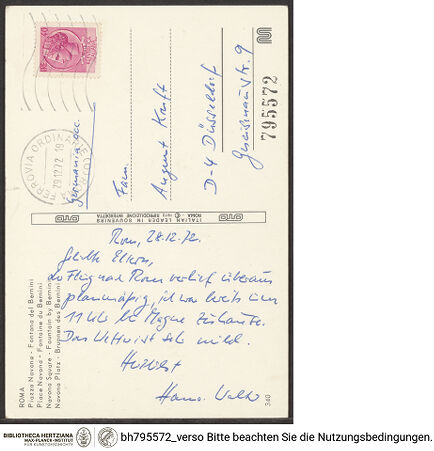 Rom, 28.12.72.
Liebe Eltern,
der Flug nach Rom verlief überaus
planmäßig, ich war bereits um
11 Uhr bei Magne zuhause.
Das Wetter ist sehr mild.
Herzlichst
Hans-Walter
Germania occ.
Fam.
August Kraft
D-4 Düsseldorf
Gneisenaustr. 9
795572
FERROVIA ORDINA
29.12.72 19
OTO
ITALIAN LEADER IN SOUVENIRS
ROMA - © 1972 RIPRODUZIONE INTERDETTA
OTO
ROMA
Piazza Navona - Fontana del Bernini
Place Navona - Fontaine du Bernini
Navona Square - Fountain by Bernini
Navona Platz - Brunnen des Bernini
340
BIBLIOTHECA HERTZIANA
MAX-PLANCK-INSTITUT
FÜR KUNSTGESCHICHTE
bh795572_verso Bitte beachten Sie die Nutzungsbedingungen.